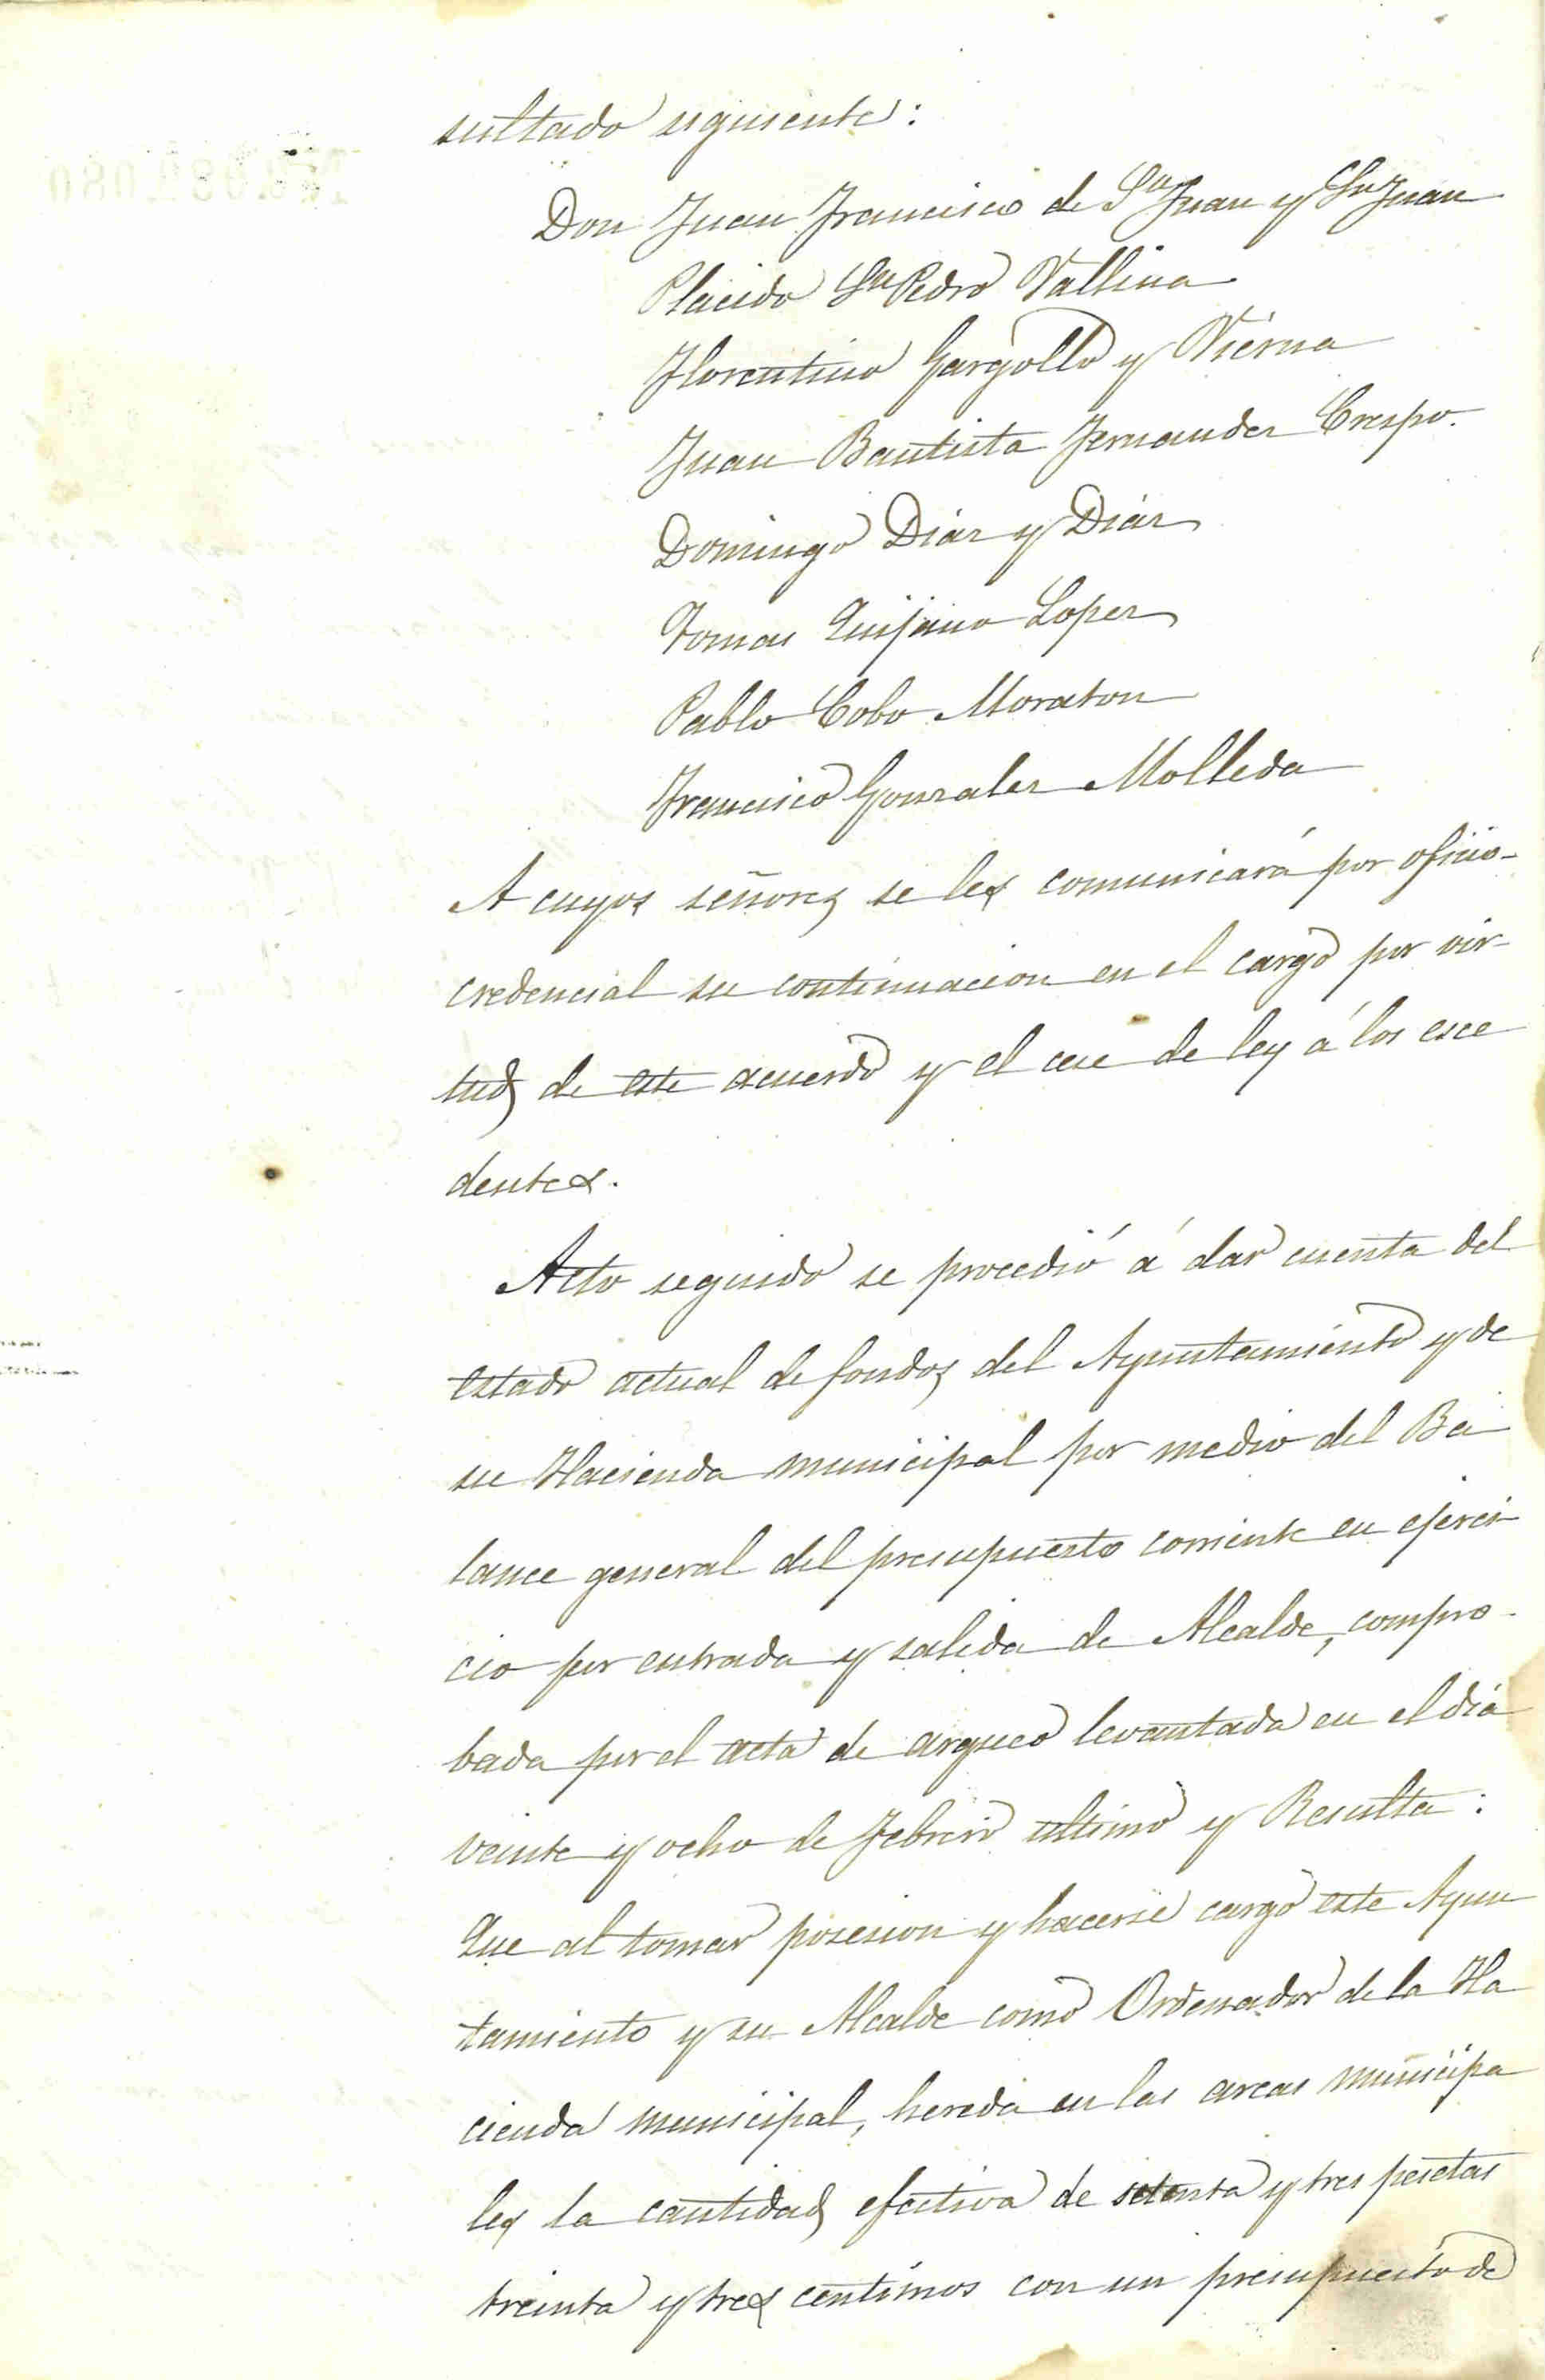 sultado siguiente:
Don Juan Francisco de Sn Juan y Sn Juan
Placido Sn Pedro Vallina
Florentino Gargollo y Vierna
Juan Bautista Fernandez Crespo.
Domingo Diáz y Diáz
Tomas Quijano Lopez
Pablo Cobo Moraton
Francisco Gonzalez Molleda
A cuyos señores se les comunicará por oficio-
credencial su continuacion en el cargo por vir-
tud de este acuerdo y el cese de ley á los esce
dentes.
Acto seguido se procedió á dar cuenta del
estado actual de fondos del Ayuntamiento y de
su Hacienda municipal por medio del Ba
lance general del presupuesto corriente en ejerci-
cio por entrada y salida de Alcalde, compro-
bada por el acta de arqueo levantada en el diá
veinte y ocho de Febrero ultimo y Resulta:
Que al tomar posesion y hacerse cargo este Ayun
tamiento y su Alcalde como Ordenador de la Ha
cienda municipal, hereda en las arcas municipa
les la cantidad efectiva de setenta y tres pesetas
treinta y tres centimos con un presupuesto de